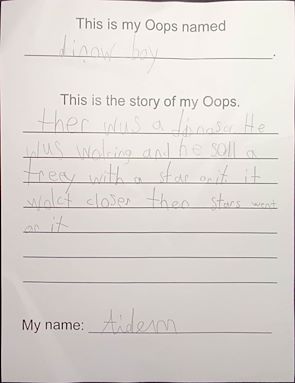 This is my Oops named
dinow boy
This is the story of my Oops.
ther wus a dinasor He
wus walking and he soll a
treey with a star onit it
walct closer then stars went
on it
My name: Aidenn